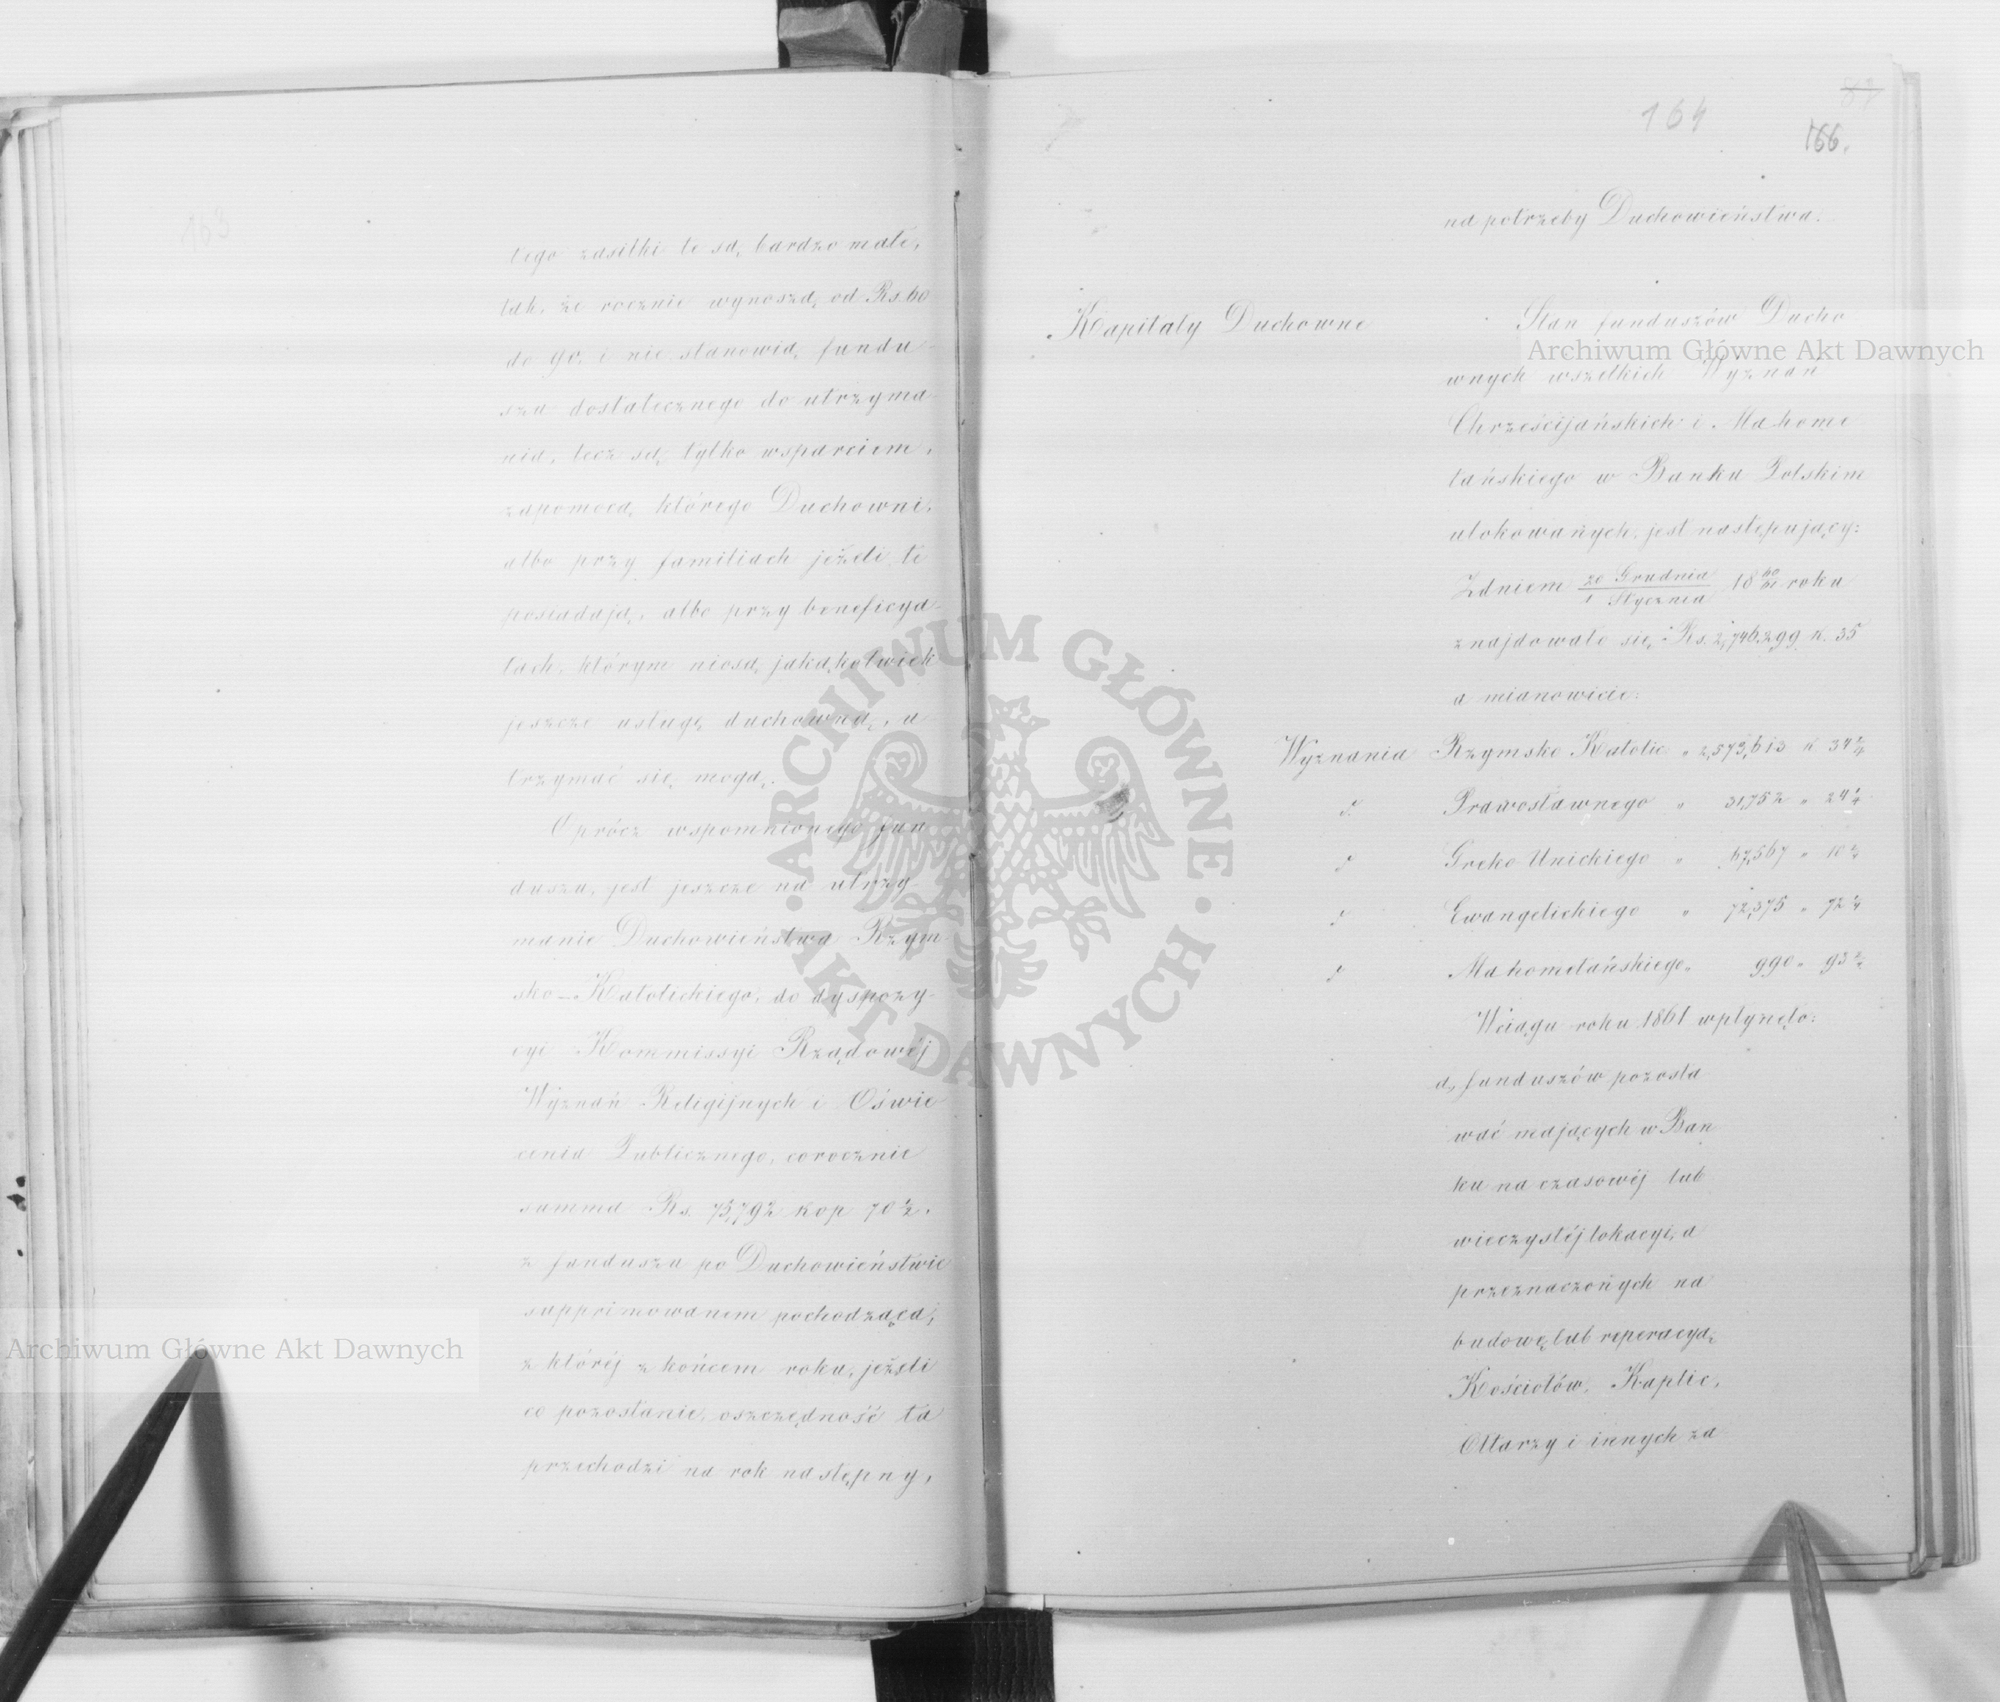 163
tego zasiłki te są, bardzo małe,
tak, że rocznie wynoszą, od Rs. 60
do 90, i nie stanowią, fundu-
szu dostatecznego do utrzyma-
nia, lecz są, tylko wsparciem,
zapomocą, którego Duchowni,
albo przy familiach jeżeli te
posiadają, albo przy beneficya-
tach, którym niosą, jakąkolwiek
jeszcze usługę duchowną, u
trzymać się mogą.
Oprócz wspomnionego fun
duszu, jest jeszcze na utrzy-
manie Duchowieństwa Rzym
sko-Katolickiego, do dyspozy-
cyi Kommissyi Rządowéj
Wyznań Religijnych i Oświe
cenia Publicznego, corocznie
summa Rs. 75,792 kop 70 ½.
z funduszu po Duchowieństwie
supprimowanem pochodząca,
z któréj z końcem roku, jeżeli
co pozostanie, oszczędność ta
przechodzi na rok następny,
87
164
166.
na potrzeby Duchowieństwa.
Kapitały Duchowne
Stan funduszów Ducho
wnych wszelkich Wyznań
Chrześcijańskich i Mahome
tańskiego w Banku Polskim
ulokowanych, jest następujący:
Z dniem 20 Grudnia / 1 Stycznia 18 60/61 roku
znajdowało się: Rs. 2,746,299 k. 35
a mianowicie:
Wyznania Rzymsko Katolic " 2,573,613 k 34 2/4
d. Prawosławnego " 31,752 " 24 1/4
d Greko Unickiego " 67,567 " 10 2/4
d Ewangelickiego " 72,375 " 72 1/4
d Mahometańskiego " 990 " 93 2/4
W ciągu roku 1861 wpłynęło:
a, funduszów pozosta
wać mających w Ban
ku na czasowéj lub
wieczystéj lokacyi, a
przeznaczonych na
budowę lub reperacyą
Kościołów, Kaplic,
Ołtarzy i innych za
Archiwum Główne Akt Dawnych
Archiwum Główne Akt Dawnych
ARCHIWUM GŁÓWNE · AKT DAWNYCH ·